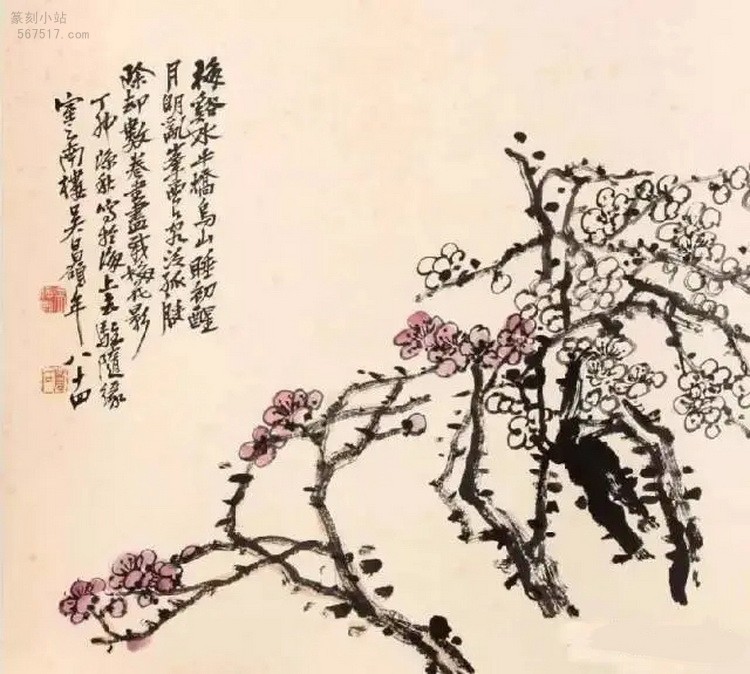 篆刻小站
567517.com
梅谿水平橋烏山睡初醒
月明亂峯西有客泛孤艇
除却數卷書盡載梅花影
丁卯深秋寫於海上去駐隨緣
室之南樓吳昌碩年八十四